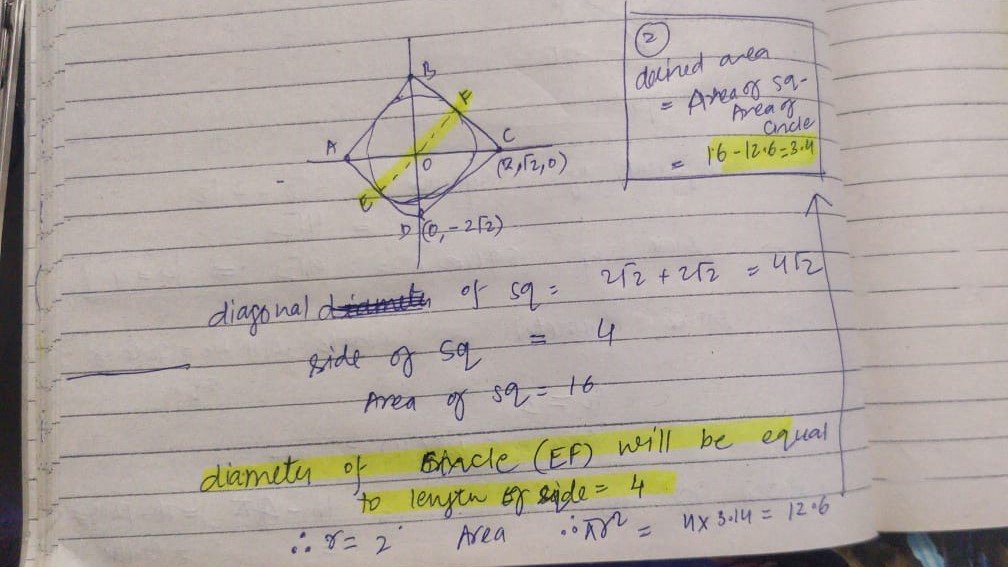 B
F
A
C
O
(2,√2,0)
E
D (0,-2√2)
2
desired area
= Area of sq-
Area of
circle
= 16-12.6=3.4
diagonal of sq = 2√2 + 2√2 = 4√2
side of sq = 4
Area of sq = 16
diameter of circle (EF) will be equal
to length of side = 4
∴ r = 2 Area ∴ πr² = 4 x 3.14 = 12.6